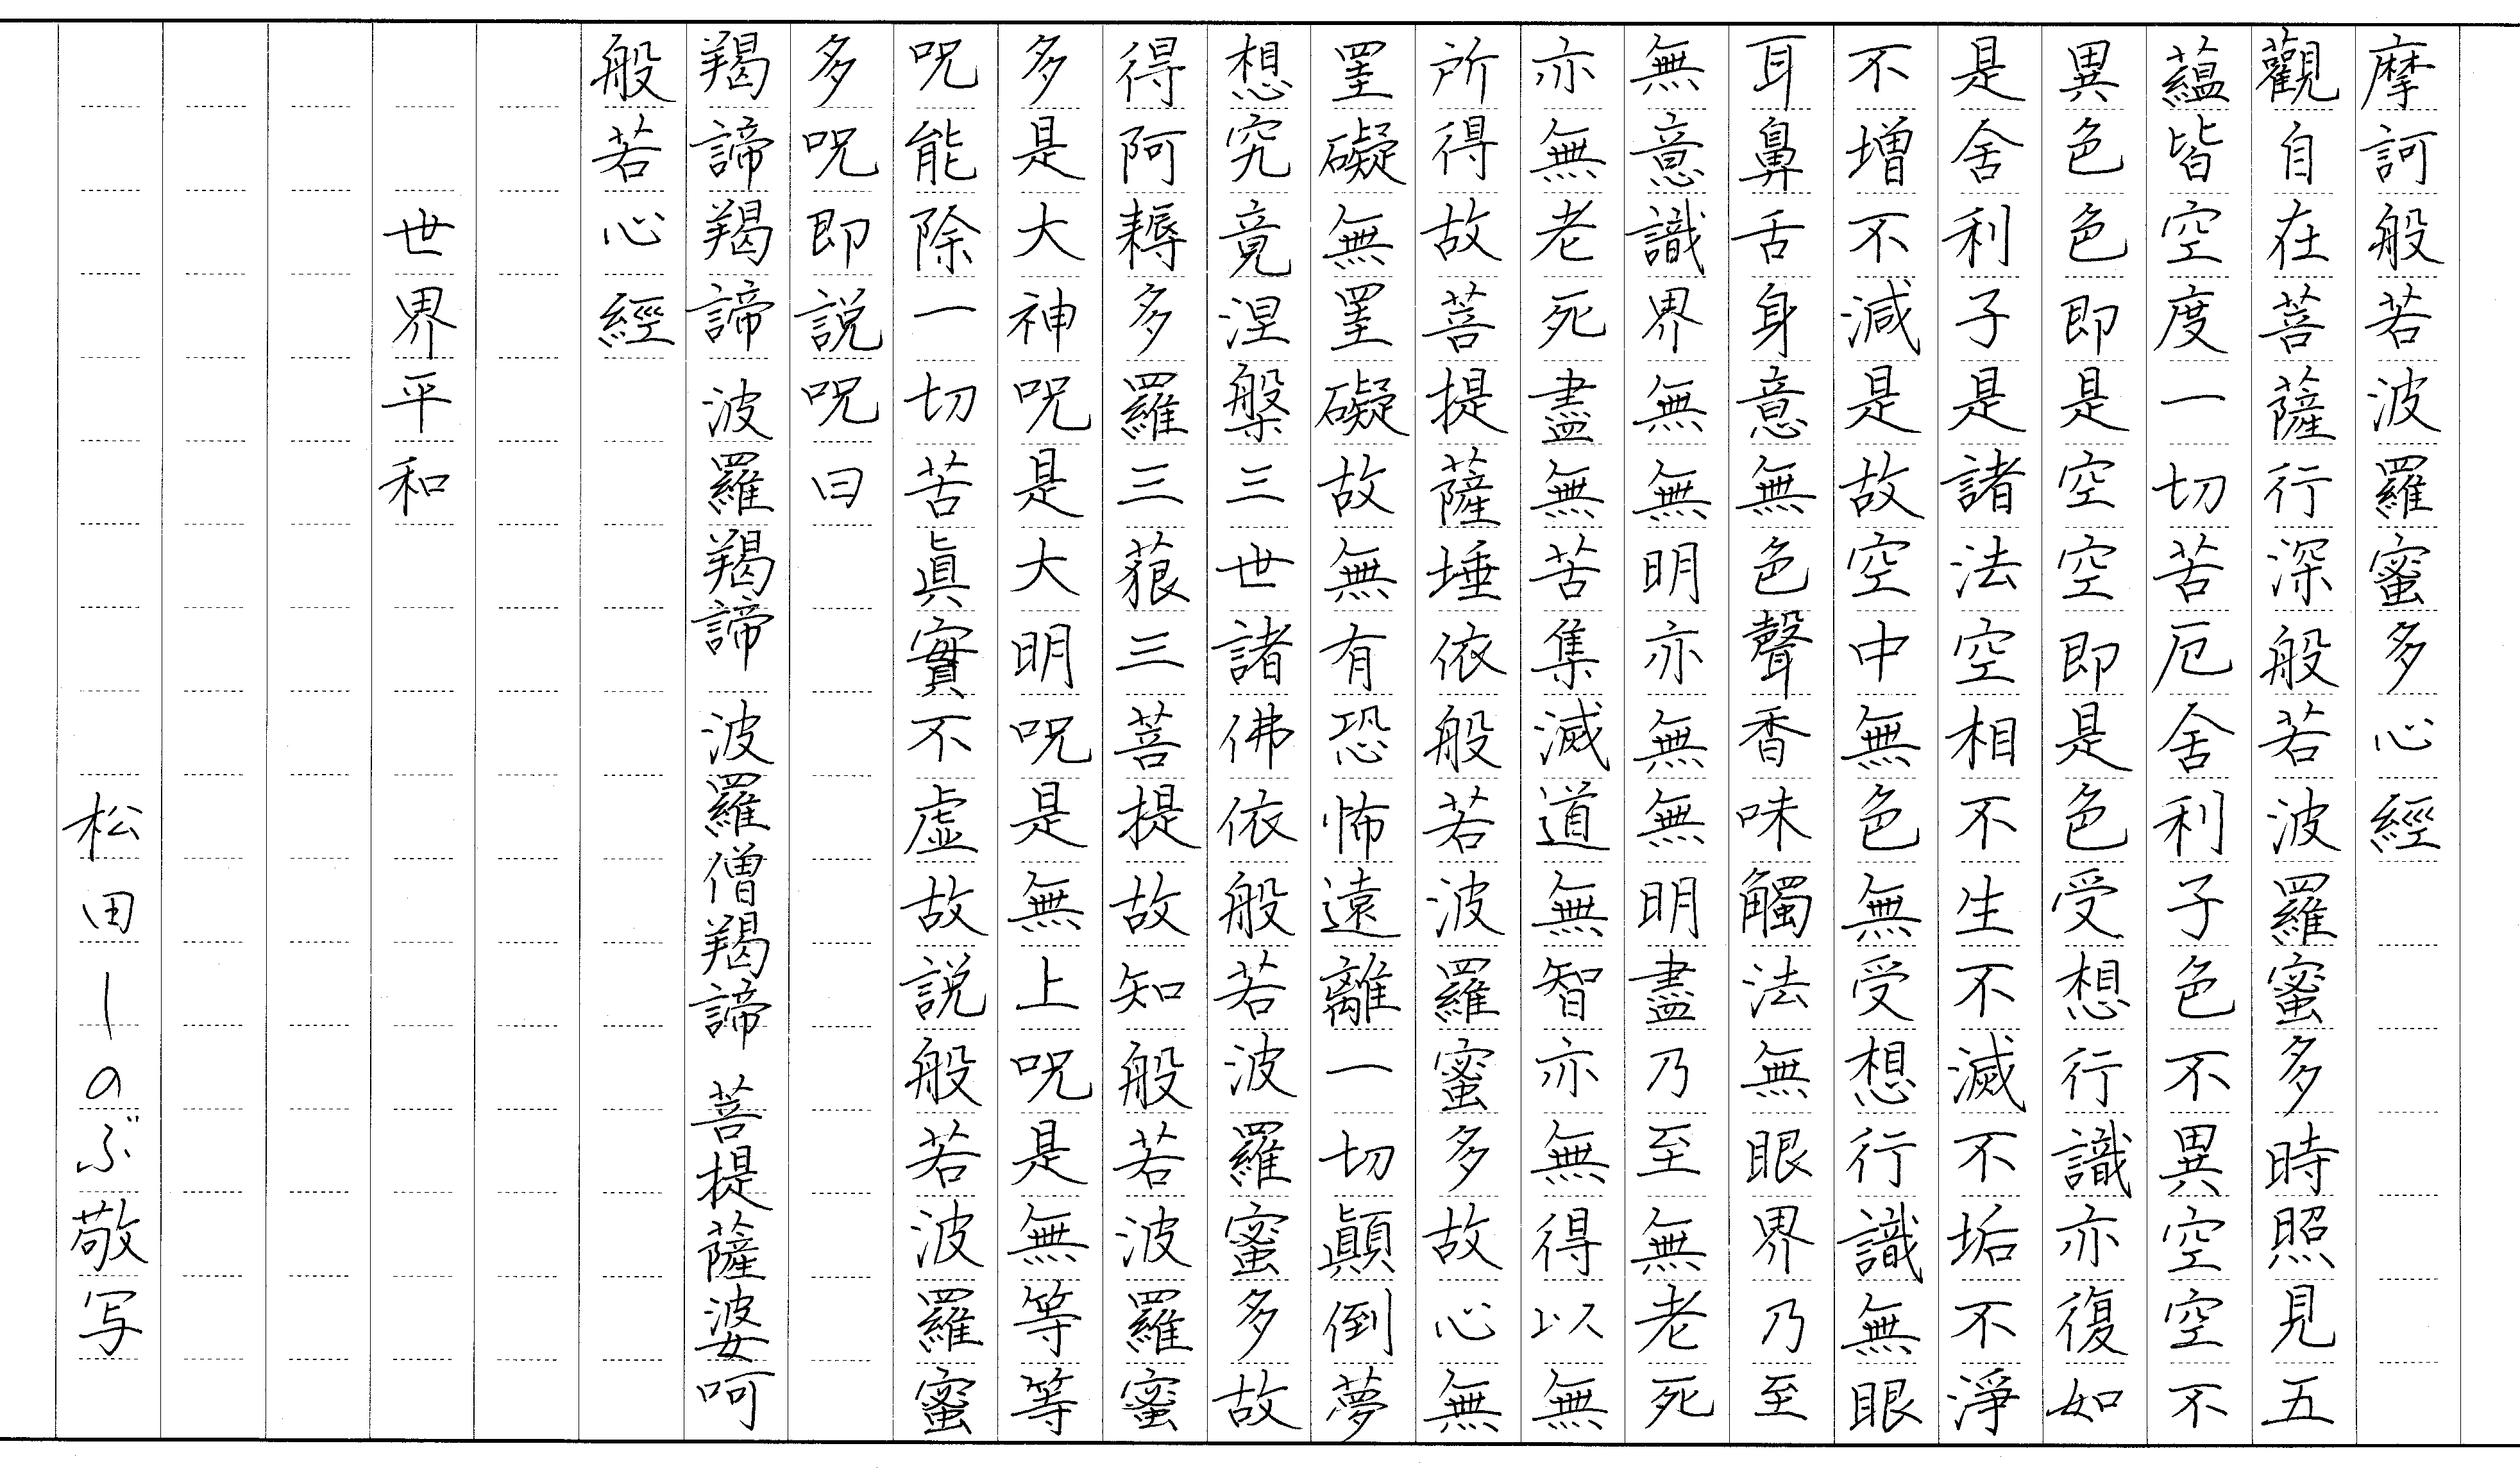 摩訶般若波羅蜜多心經
觀自在菩薩行深般若波羅蜜多時照見五
蘊皆空度一切苦厄舍利子色不異空空不
異色色即是空空即是色受想行識亦復如
是舍利子是諸法空相不生不滅不垢不淨
不増不減是故空中無色無受想行識無眼
耳鼻舌身意無色聲香味觸法無眼界乃至
無意識界無無明亦無無明盡乃至無老死
亦無老死盡無苦集滅道無智亦無得以無
所得故菩提薩埵依般若波羅蜜多故心無
罣礙無罣礙故無有恐怖遠離一切顚倒夢
想究竟涅槃三世諸佛依般若波羅蜜多故
得阿耨多羅三藐三菩提故知般若波羅蜜
多是大神呪是大明呪是無上呪是無等等
呪能除一切苦眞實不虚故説般若波羅蜜
多呪即説呪曰
羯諦羯諦 波羅羯諦 波羅僧羯諦 菩提薩婆呵
般若心經
世界平和
松田しのぶ敬写